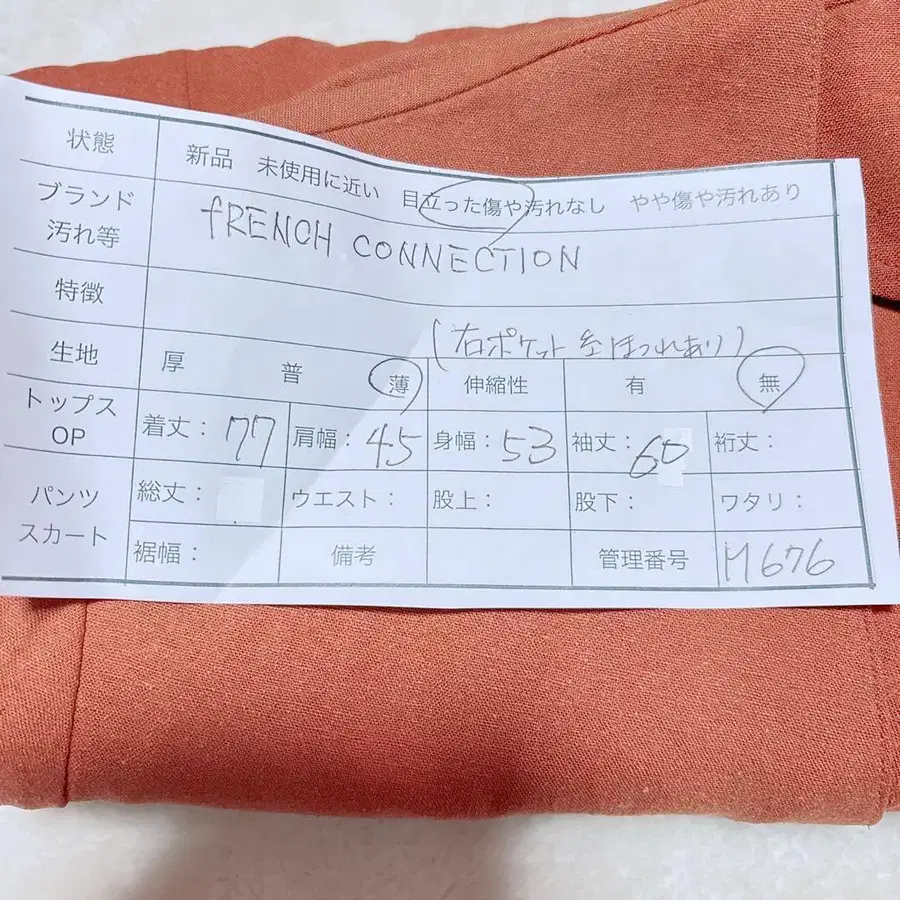 状態 新品 未使用に近い 目立った傷や汚れなし やや傷や汚れあり
ブランド
汚れ等
fRENCH CONNECTION
特徴
(右ポケット糸ほつれあり)
生地 厚 普 薄 伸縮性 有 無
トップス
OP
着丈: 77 肩幅: 45 身幅: 53 袖丈: 60 裄丈:
パンツ
スカート
総丈: ウエスト: 股上: 股下: ワタリ:
裾幅: 備考 管理番号 M676